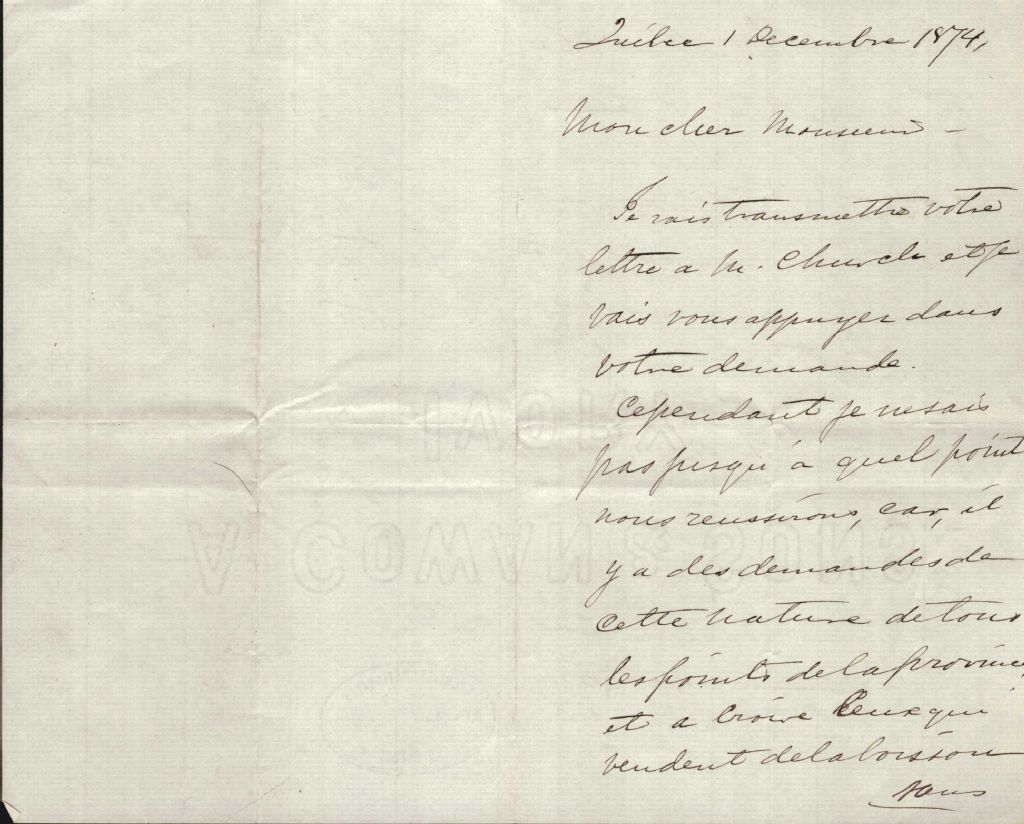 Québec 1 Decembre 1874,
Mon cher Monsieur –
Je vais transmettre votre
lettre a M. Church et je
vais vous appuyer dans
votre demande.
Cependant je ne sais
pas jusqu'à quel point
nous reussirons, car, il
y a des demandes de
cette nature de tous
les points de la province
et a croire ceux qui
vendent de la boisson
sans
A COWAN & SONS